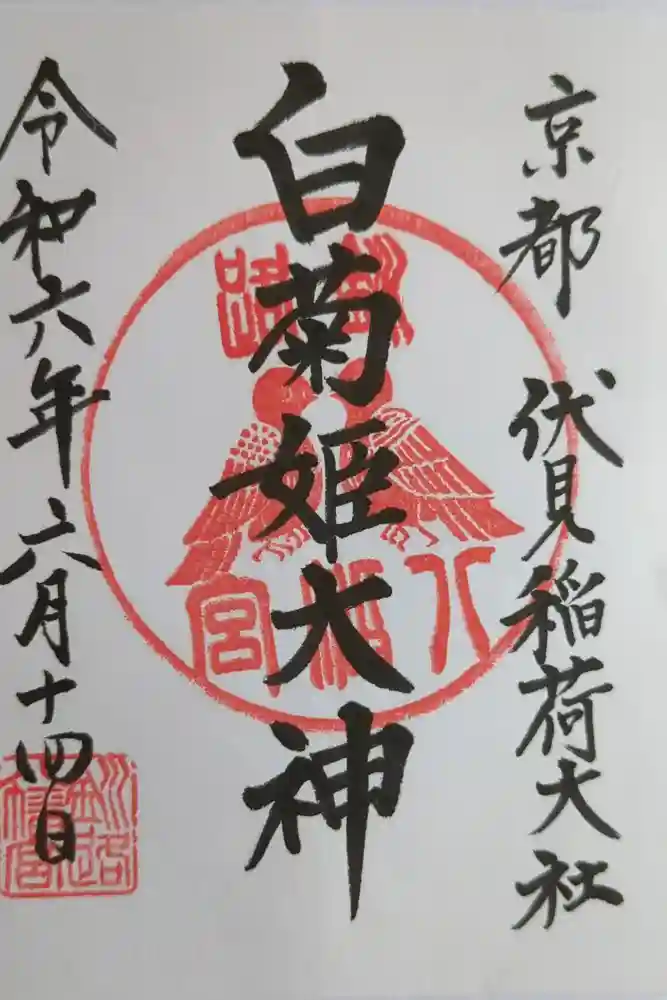 京都 伏見稲荷大社
白菊姫大神
令和六年六月十四日
八幡宮